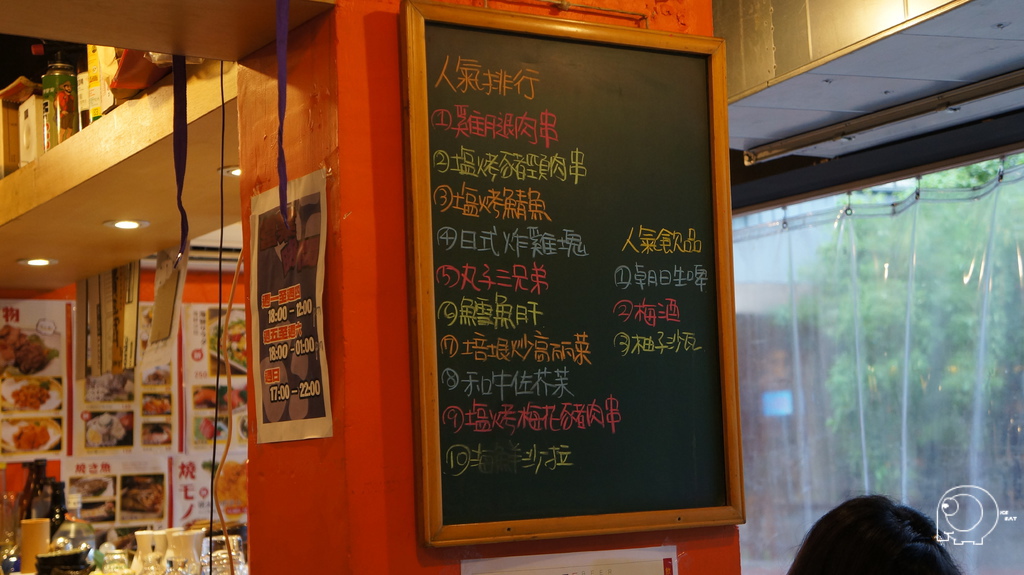 人氣排行
①雞腿肉串
②塩烤豬頸肉串
③塩烤鯖魚
④日式炸雞塊
⑤丸子三兄弟
⑥鱈魚肝
⑦培根炒高麗菜
⑧和牛佐芥菜
⑨塩烤梅花豬肉串
⑩海鮮沙拉
人氣飲品
①朝日生啤
②梅酒
③柚子沙瓦
18:00 - 12:00
18:00 - 01:00
週日
17:00 - 22:00
物
焼き魚
焼モノ